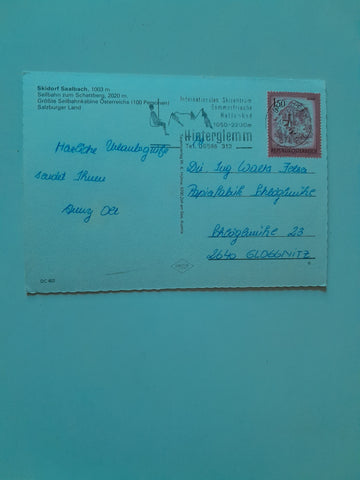 Skidorf Saalbach, 1003 m
Seilbahn zum Schattberg, 2020 m,
Größte Seilbahnkabine Österreichs (100 Personen)
Salzburger Land
Internationales Skizentrum
Sommerfrische
Hallenbad
1050-2200m
Hinterglemm
Tel. 06546 352
150
REPUBLIK ÖSTERREICH
Herzliche Urlaubsgrüße
sendet Ihnen
Dir Ing
Papierfabrik Schlöglmühle
Schlöglmühle 23
2640 GLOGGNITZ